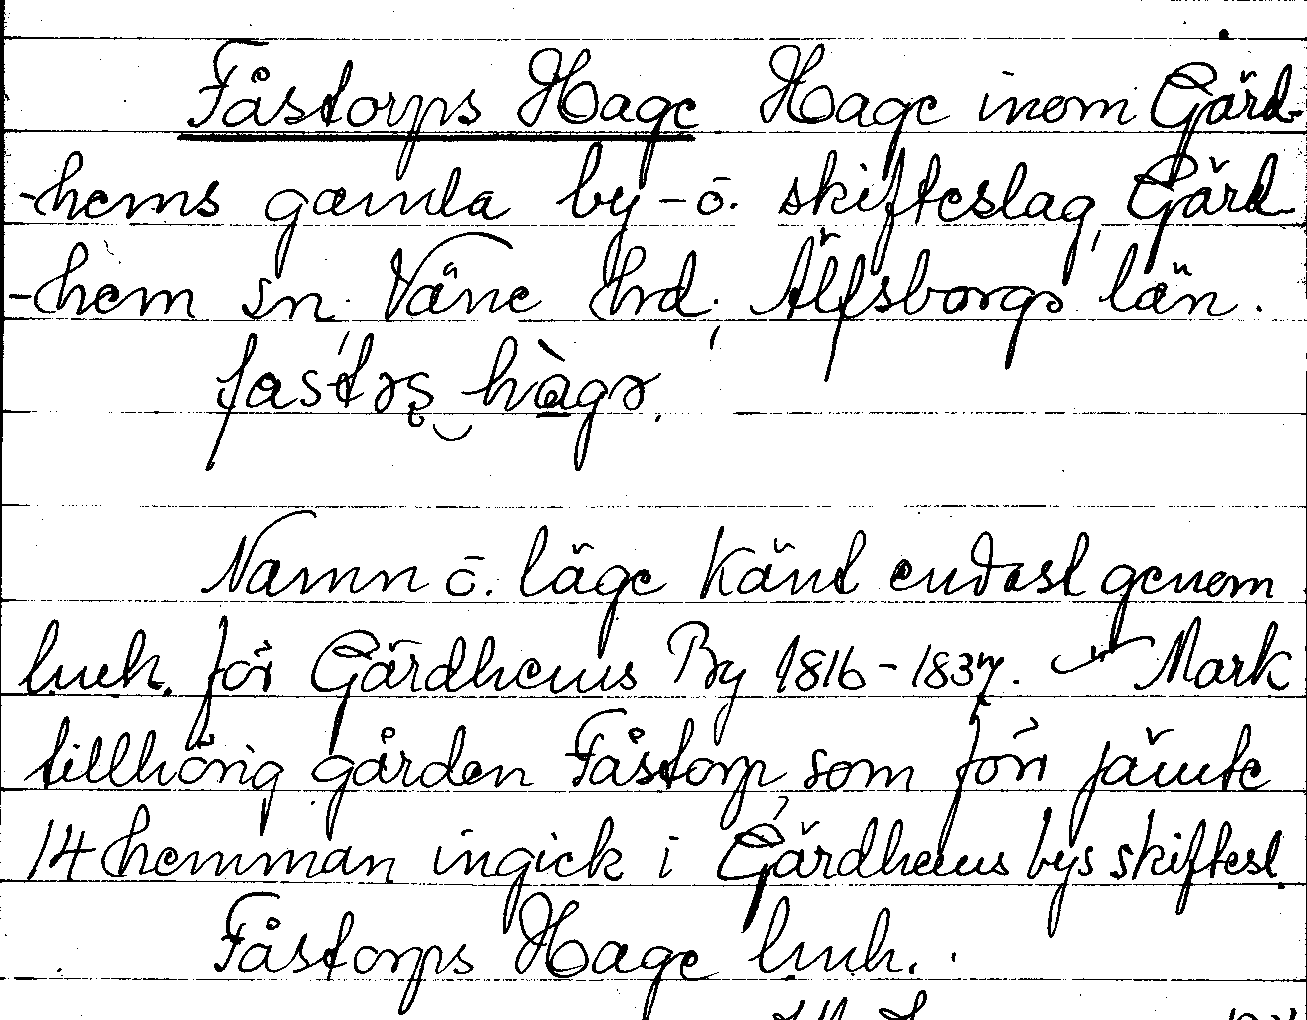 Fåstorps Hage Hage inom Gärd-
-hems gamla by- o. skifteslag, Gärd-
-hem sn, Väne hrd, Älfsborgs län.
fastəṣ hàgə.
Namn o. läge känt endast genom
lmh. för Gärdhems By 1816-1837. Mark
tillhörig gården Fåstorp, som förr jämte
14 hemman ingick i Gärdhems bys skiftesl.
Fåstorps Hage lmh.